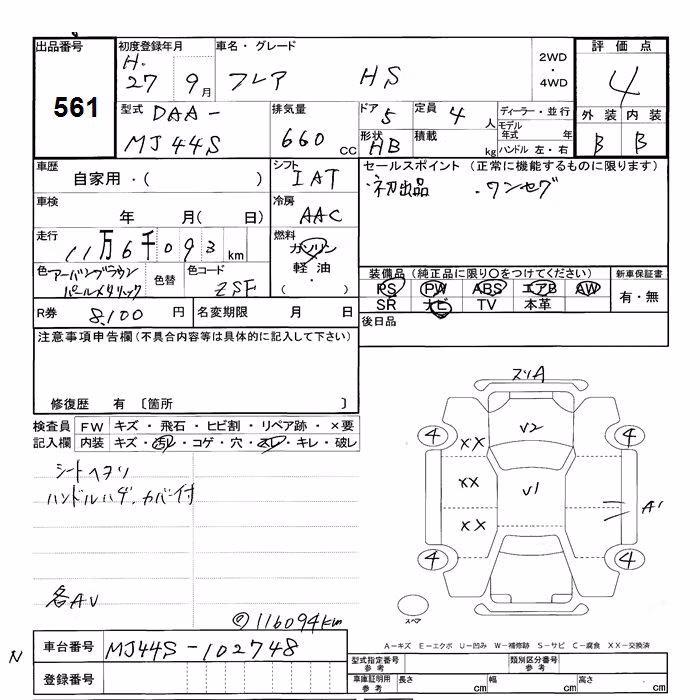 出品番号
561
初度登録年月
H.
27 9月
車名・グレード
フレア HS
2WD
・
4WD
評価点
4
型式 DAA-
MJ44S
排気量
660 CC
ドア 5
定員 4 人
形状 HB
積載 kg
ディーラー・並行
モデル年式 年
ハンドル 左・右
外装 内装
B B
車歴
自家用・( )
シフト
IAT
セールスポイント (正常に機能するものに限ります)
・初出品 ・ワンセグ
車検
年 月( 日)
冷房
AAC
走行
11万6千093 km
燃料
ガソリン
軽油
・
( )
色 アーバンブラウン
パールメタリック
色替
色コード
ZSF
装備品 (純正品に限り○をつけてください)
PS PW ABS エアB AW
SR ナビ TV 本革
新車保証書
有・無
R券 8,100 円
名変期限 月 日
後日品
注意事項申告欄(不具合内容等は具体的に記入して下さい)
修復歴 有 〔箇所 〕
検査員 FW キズ・飛石・ヒビ割・リペア跡・×要
記入欄 内装 キズ・汚レ・コゲ・穴・スレ・キレ・破レ
シートヘタリ
ハンドルハゲ、カバー付
各AU
116094km
スリA
4 U2 4
XX
XX U1
XX A1
4 4
スペア
A-キズ E-エクボ U-凹み W-補修跡 S-サビ C-腐食 XX-交換済
N
車台番号 MJ44S-102748
登録番号
型式指定番号 参考
類別区分番号 参考
車庫証明用 参考
長さ cm
幅 cm
高さ cm